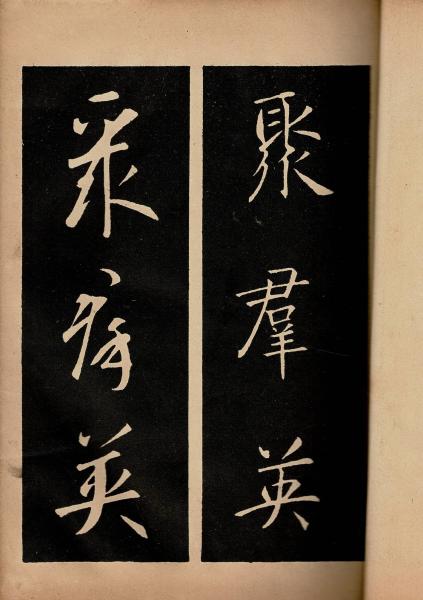 聚羣英
聚羣英